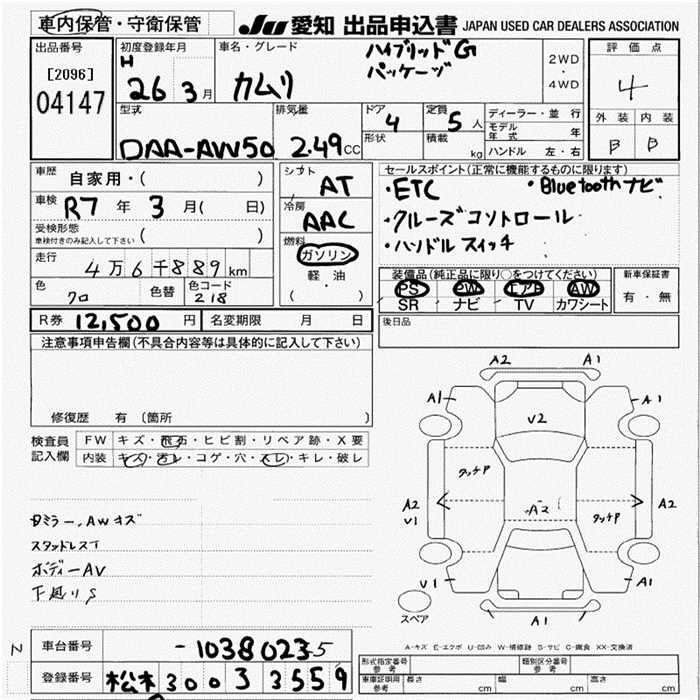 車内保管・守衛保管
JU 愛知 出品申込書 JAPAN USED CAR DEALERS ASSOCIATION
出品番号
[2096]
04147
初度登録年月
H
26 3月
車名・グレード
カムリ
ハイブリッドG
パッケージ
2WD
・
4WD
評価点
4
外装 内装
B B
型式
DAA-AVV50
排気量
2.49 CC
ドア
4
形状
定員
5 人
積載
kg
ディーラー・並行
モデル年式 年
ハンドル 左・右
車歴
自家用・( )
車検
R7 年 3 月( 日)
受検形態
車検付きのみ記入して下さい ( )
走行
4万6千889km
色
クロ
色替
色コード
218
シフト
AT
冷房
AAC
燃料
ガソリン
軽・油
( )
セールスポイント(正常に機能するものに限ります)
・ETC ・Bluetoothナビ
・クルーズコントロール
・ハンドルスイッチ
装備品(純正品に限り○をつけてください)
PS PW エアB AW
SR ナビ TV カワシート
新車保証書
有・無
後日品
R券 12,500 円
名変期限 月 日
注意事項申告欄(不具合内容等は具体的に記入して下さい)
修復歴 有 (箇所 )
検査員
記入欄
FW キズ・飛石・ヒビ割・リペア跡・X要
内装 キズ・汚レ・コゲ・穴・スレ・キレ・破レ
ミラー、AWキズ
スタッドレスT
ボディーAV
下廻りS
A2 A1
A1 A1
V2
タッチP
A2
V1
A2
タッチP
A2
V1 A1
スペア
A1
A-キズ E-エクボ U-凹み W-補修跡 S-サビ C-腐食 XX-交換済
N
車台番号
-1038023-5
登録番号
松本 300 3 3559
形式指定番号
参考
類別区分番号
参考
車庫証明用
参考
長さ cm
幅 cm
高さ cm